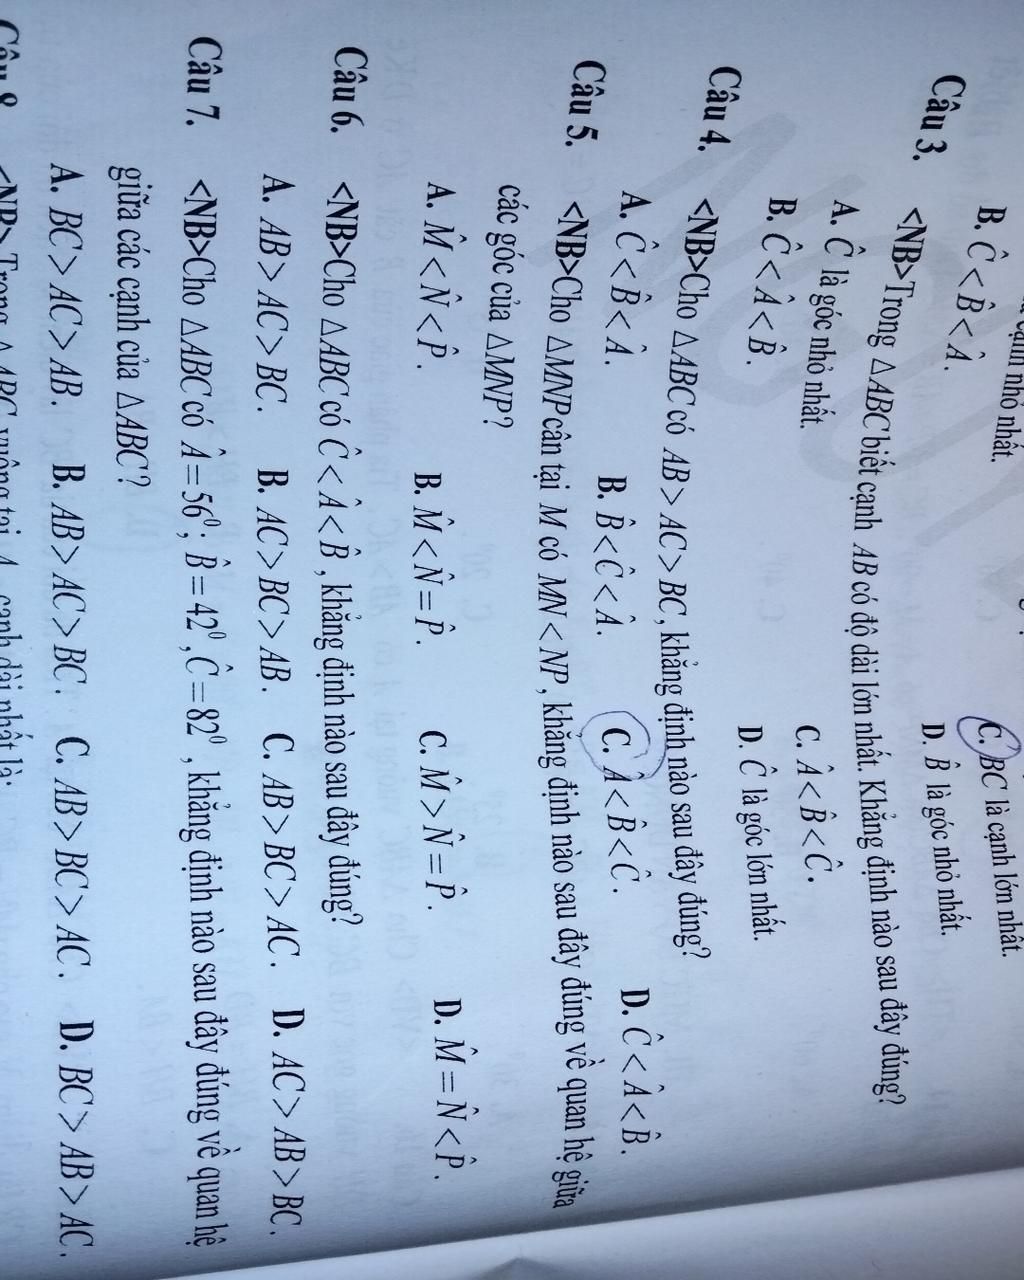 cạnh nhỏ nhất.
B. Ĉ < B̂ < Â.
C. BC là cạnh lớn nhất.
D. B̂ là góc nhỏ nhất.
Câu 3. <NB>Trong △ABC biết cạnh AB có độ dài lớn nhất. Khẳng định nào sau đây đúng?
A. Ĉ là góc nhỏ nhất. C. Â < B̂ < Ĉ.
B. Ĉ < Â < B̂. D. Ĉ là góc lớn nhất.
Câu 4. <NB>Cho △ABC có AB > AC > BC, khẳng định nào sau đây đúng?
A. Ĉ < B̂ < Â. B. B̂ < Ĉ < Â. C. Â < B̂ < Ĉ. D. Ĉ < Â < B̂.
Câu 5. <NB>Cho △MNP cân tại M có MN < NP, khẳng định nào sau đây đúng về quan hệ giữa
các góc của △MNP?
A. M̂ < N̂ < P̂. B. M̂ < N̂ = P̂. C. M̂ > N̂ = P̂. D. M̂ = N̂ < P̂.
Câu 6. <NB>Cho △ABC có Ĉ < Â < B̂, khẳng định nào sau đây đúng?
A. AB > AC > BC. B. AC > BC > AB. C. AB > BC > AC. D. AC > AB > BC.
Câu 7. <NB>Cho △ABC có Â = 56⁰; B̂ = 42⁰, Ĉ = 82⁰, khẳng định nào sau đây đúng về quan hệ
giữa các cạnh của △ABC?
A. BC > AC > AB. B. AB > AC > BC. C. AB > BC > AC. D. BC > AB > AC.
Câu 8. <NB>Trong △ABC vuông tại A, cạnh dài nhất là: